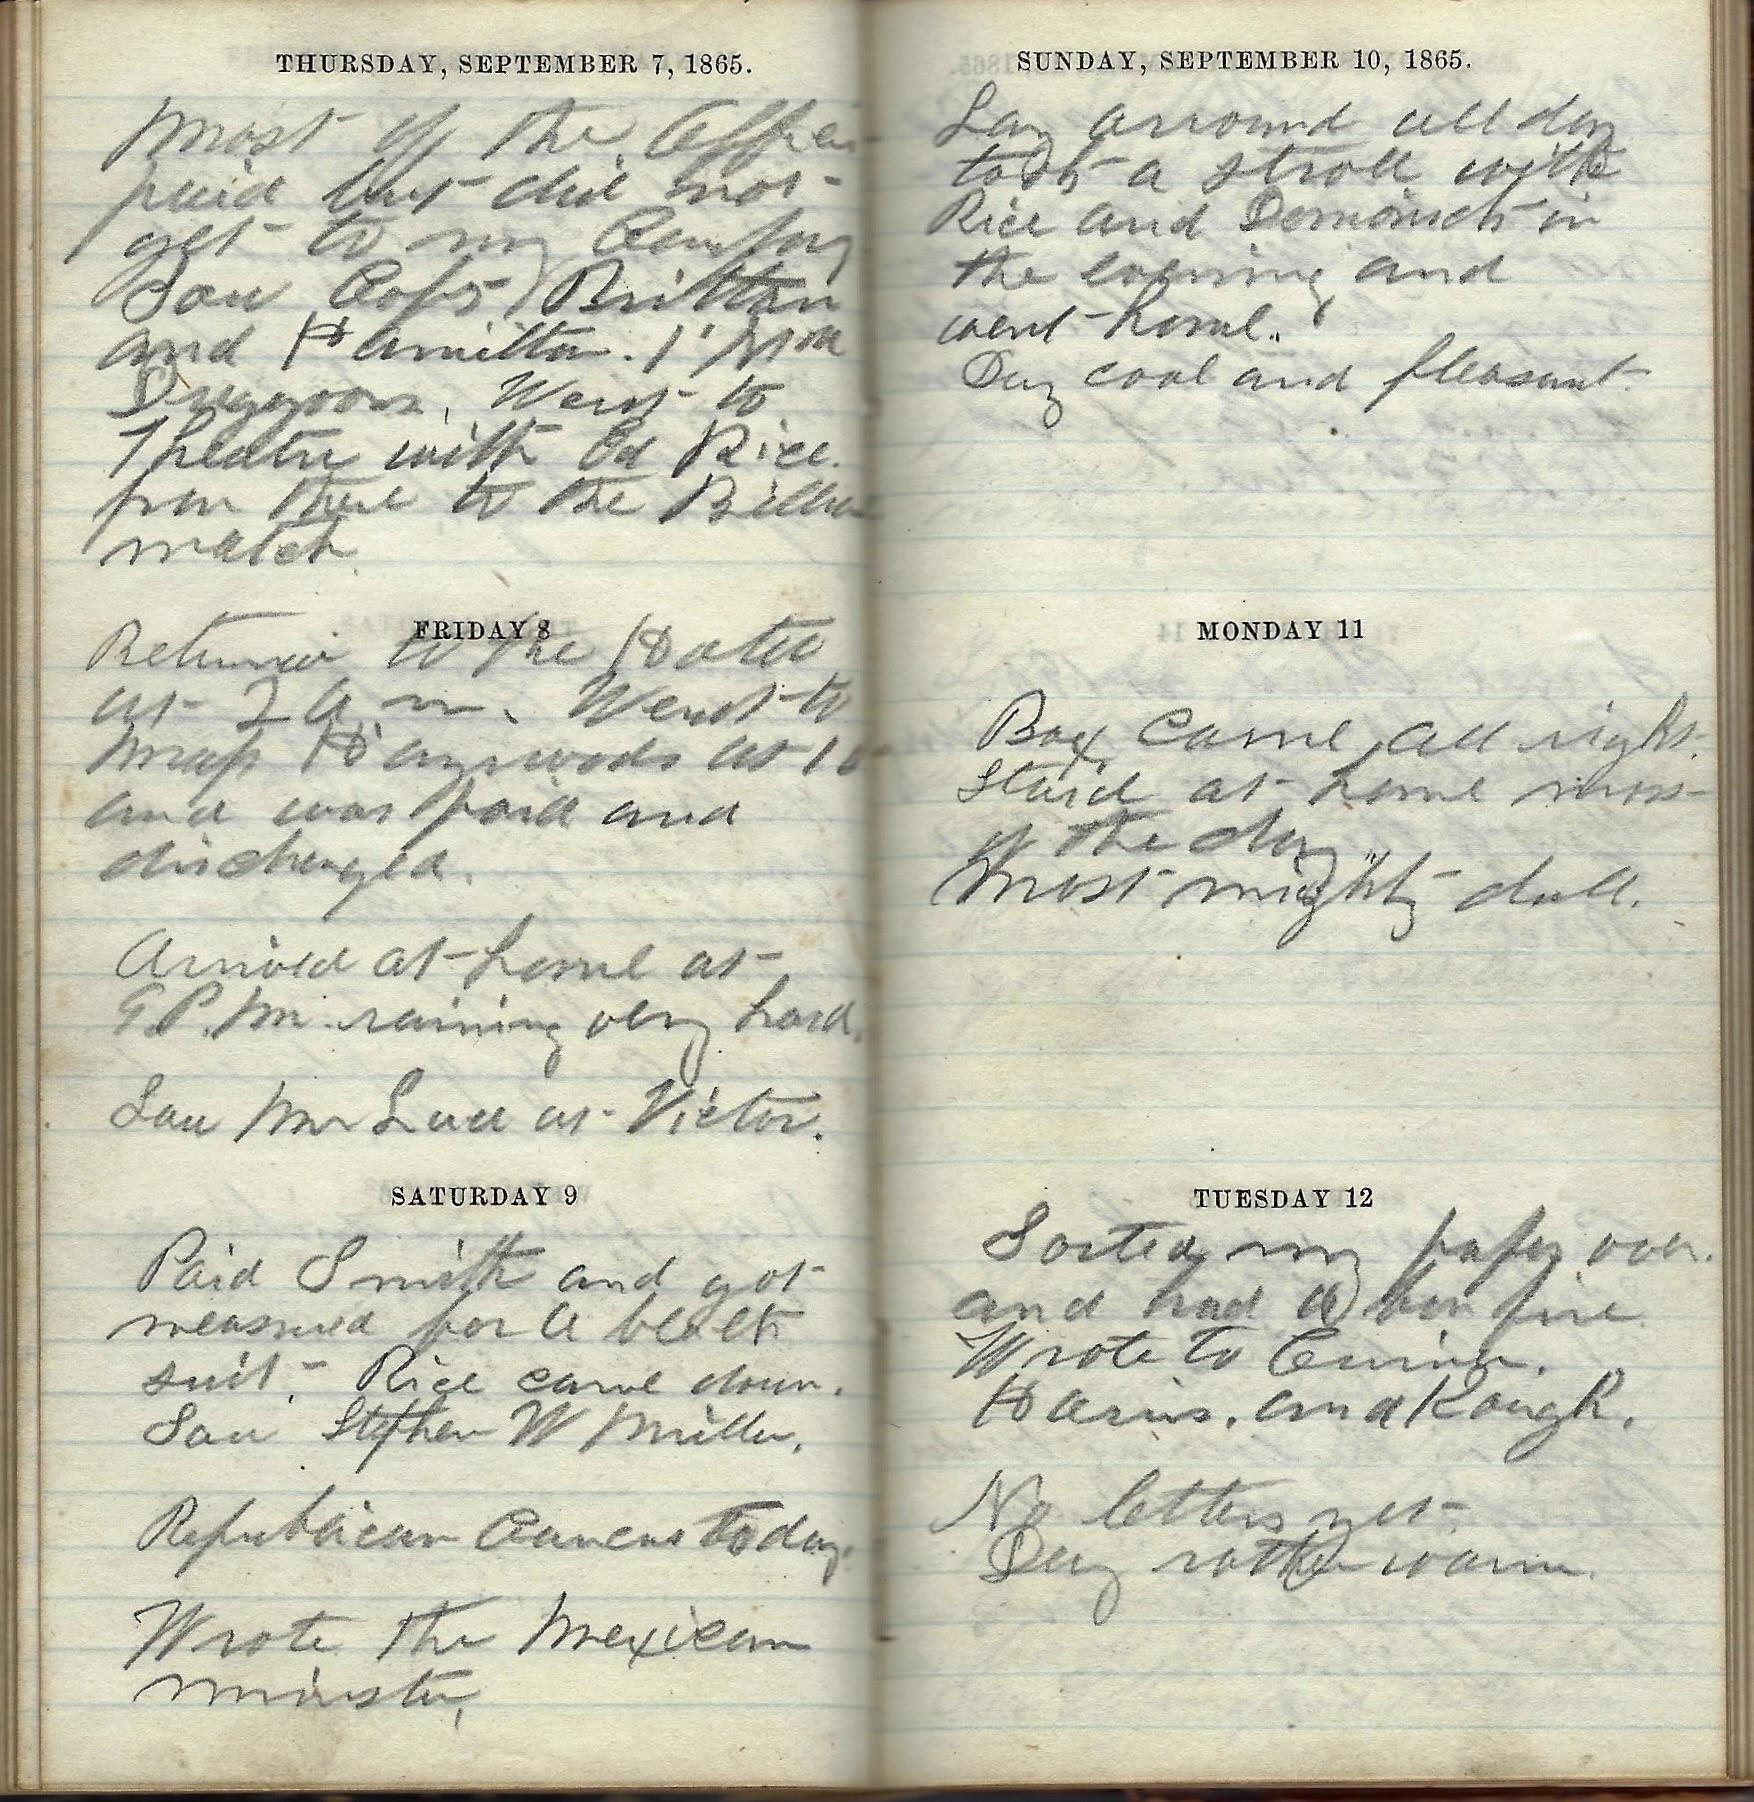 THURSDAY, SEPTEMBER 7, 1865.
Most of the Officers
paid but did not
get to my Company
Saw Capts Brittan
and Hamilton. 1st
Draggoons. Went to
Theatre with Ed Rice.
from there to the Billiard
match
FRIDAY 8
Returned to the Hotel
at 2 a m. Went to
Maj Haywoods at 10
and was paid and
discharged.
Arrived at home at
P.M. raining very hard.
Saw Mr Luce at Victor.
SATURDAY 9
Paid Smith and got
measured for a black
suit. Rice came down.
Saw Stephen W Miller.
Republican Caucus today.
Wrote the Mexican
minister,
SUNDAY, SEPTEMBER 10, 1865.
Lay arround all day
took a stroll with
Rice and in
the evening and
went home.
Day cool and pleasant
MONDAY 11
Box came all right.
Staid at home most
of the day
Most mighty dull.
TUESDAY 12
Sorted my papers over.
and had a bon fire
Wrote to
Harris. and Keigh.
No letters yet
Day rather warm.